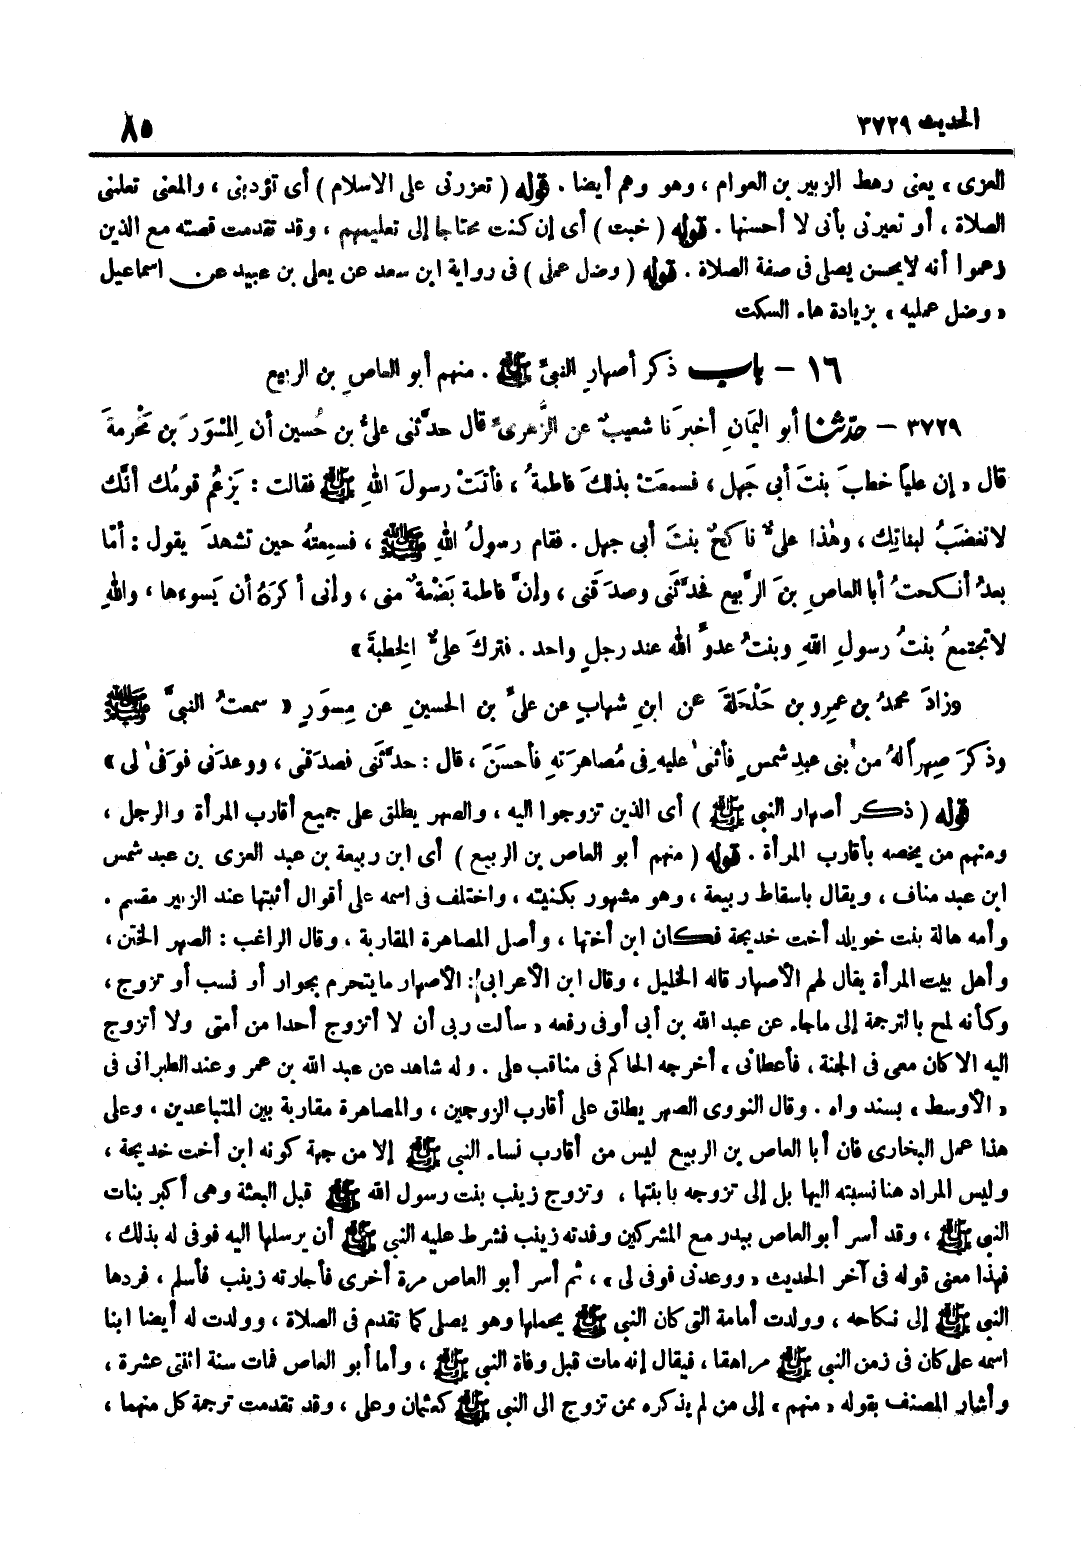 الحديث ٣٧٢٩
٨٥
العزى ، يعنى رهط الزبير بن العوام ، وهو وهم أيضا . قوله ( تعزرنى على الاسلام ) أى تؤدبنى ، والمعنى تعلمنى
الصلاة ، أو تعيرنى بأنى لا أحسنها . قوله ( خبت ) أى إن كنت محتاجا إلى تعليمهم ، وقد تقدمت قصته مع الذين
زعموا أنه لا يحسن يصلى فى صفة الصلاة . قوله ( وضل عملى ) فى رواية ابن سعد عن يعلى بن عبيد عن اسماعيل
« وضل عمليه ، بزيادة هاء السكت
١٦ - باب ذكر أصهارِ النبىِّ ﷺ . منهم أبو العاصِ بن الربيع
٣٧٢٩ - حدّثنا أبو اليمانِ أخبرَنا شعيبٌ عن الزُّهرىِّ قال حدَّثنى علىُّ بن حُسين أن المِسْوَرَ بن مَخْرمةَ
قال « إن علياً خطبَ بنتَ أبى جَهل ، فسمعَتْ بذلكَ فاطمةُ ، فأتَتْ رسولَ اللهِ ﷺ فقالت : يَزعُم قومُك أنَّك
لا تغضَبُ لبناتِك ، وهٰذا علىٌّ ناكحٌ بنتَ أبى جهل . فقام رسولُ اللهِ ﷺ ، فسمِعتهُ حين تشهدَ يقول : أمّا
بعدُ أنكحتُ أبا العاص بنَ الرَّبيع فحدَّثَنى وصدَقَنى ، وإنَّ فاطمة بَضْعةٌ منى ، وإنى أكرَهُ أن يَسوءَها ، واللهِ
لا تجتمعُ بنتُ رسولِ اللهِ وبنتُ عدوِّ الله عند رجلٍ واحد . فتركَ علىٌّ الخِطبةَ »
وزادَ محمدُ بن عمرِو بن حَلْحَلةَ عن ابنِ شهابٍ عن علىِّ بن الحسينِ عن مِسوَرٍ « سمعتُ النبىَّ ﷺ
وذكرَ صِهراً لهُ من بنى عبدِ شمسٍ فأثنىٰ عليهِ فى مُصاهرَتهِ فأحسَنَ ، قال : حدَّثَنى فصدَقنى ، ووعدَنى فوَفىٰ لى »
قوله ( ذكر أصهار النبى ﷺ ) أى الذين تزوجوا اليه ، والصهر يطلق على جميع أقارب المرأة والرجل ،
ومنهم من يخصه بأقارب المرأة . قوله ( منهم أبو العاص بن الربيع ) أى ابن ربيعة بن عبد العزى بن عبد شمس
ابن عبد مناف ، ويقال باسقاط ربيعة ، وهو مشهور بكنيته ، واختلف فى اسمه على أقوال أثبتها عند الزبير مقسم .
وأمه هالة بنت خويلد أخت خديجة فكان ابن أختها ، وأصل المصاهرة المقاربة ، وقال الراغب : الصهر الختن ،
وأهل بيت المرأة يقال لهم الأصهار قاله الخليل ، وقال ابن الأعرابى : الأصهار ما يتحرم بجوار أو نسب أو تزوج ،
وكأنه لمح بالترجمة إلى ما جاء عن عبد الله بن أبى أوفى رفعه « سألت ربى أن لا أتزوج أحدا من أمتى ولا أتزوج
اليه الا كان معى فى الجنة ، فأعطانى » أخرجه الحاكم فى مناقب على . وله شاهد عن عبد الله بن عمر وعند الطبرانى فى
« الأوسط » بسند واه . وقال النووى الصهر يطلق على أقارب الزوجين ، والمصاهرة مقاربة بين المتباعدين ، وعلى
هذا عمل البخارى فان أبا العاص بن الربيع ليس من أقارب نساء النبى ﷺ إلا من جهة كونه ابن أخت خديجة ،
وليس المراد هنا نسبته اليها بل إلى تزوجه بابنتها ، وتزوج زينب بنت رسول الله ﷺ قبل البعثة وهى أكبر بنات
النبى ﷺ ، وقد أسر أبو العاص ببدر مع المشركين وفدته زينب فشرط عليه النبى ﷺ أن يرسلها اليه فوفى له بذلك ،
فهذا معنى قوله فى آخر الحديث « ووعدنى فوفى لى » ، ثم أسر أبو العاص مرة أخرى فأجارته زينب فأسلم ، فردها
النبى ﷺ إلى نكاحه ، وولدت أمامة التى كان النبى ﷺ يحملها وهو يصلى كما تقدم فى الصلاة ، وولدت له أيضا ابنا
اسمه على كان فى زمن النبى ﷺ مراهقا ، فيقال إنه مات قبل وفاة النبى ﷺ ، وأما أبو العاص فمات سنة اثنتى عشرة ،
وأشار المصنف بقوله « منهم » إلى من لم يذكره ممن تزوج الى النبى ﷺ كعثمان وعلى ، وقد تقدمت ترجمة كل منهما ،